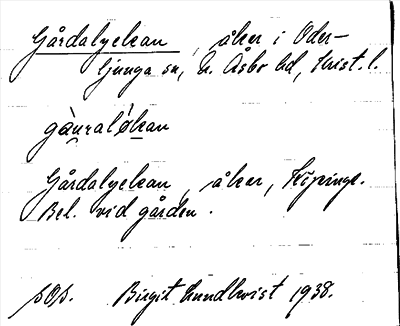 Gårdalyckan, åker i Oder-
ljunga sn, N. Åsbo hd, Krist. l.
gàu̯ralỳkan
Gårdalyckan, åker, Köpinge.
Bel. vid gården.
Birgit Lundkvist 1938.